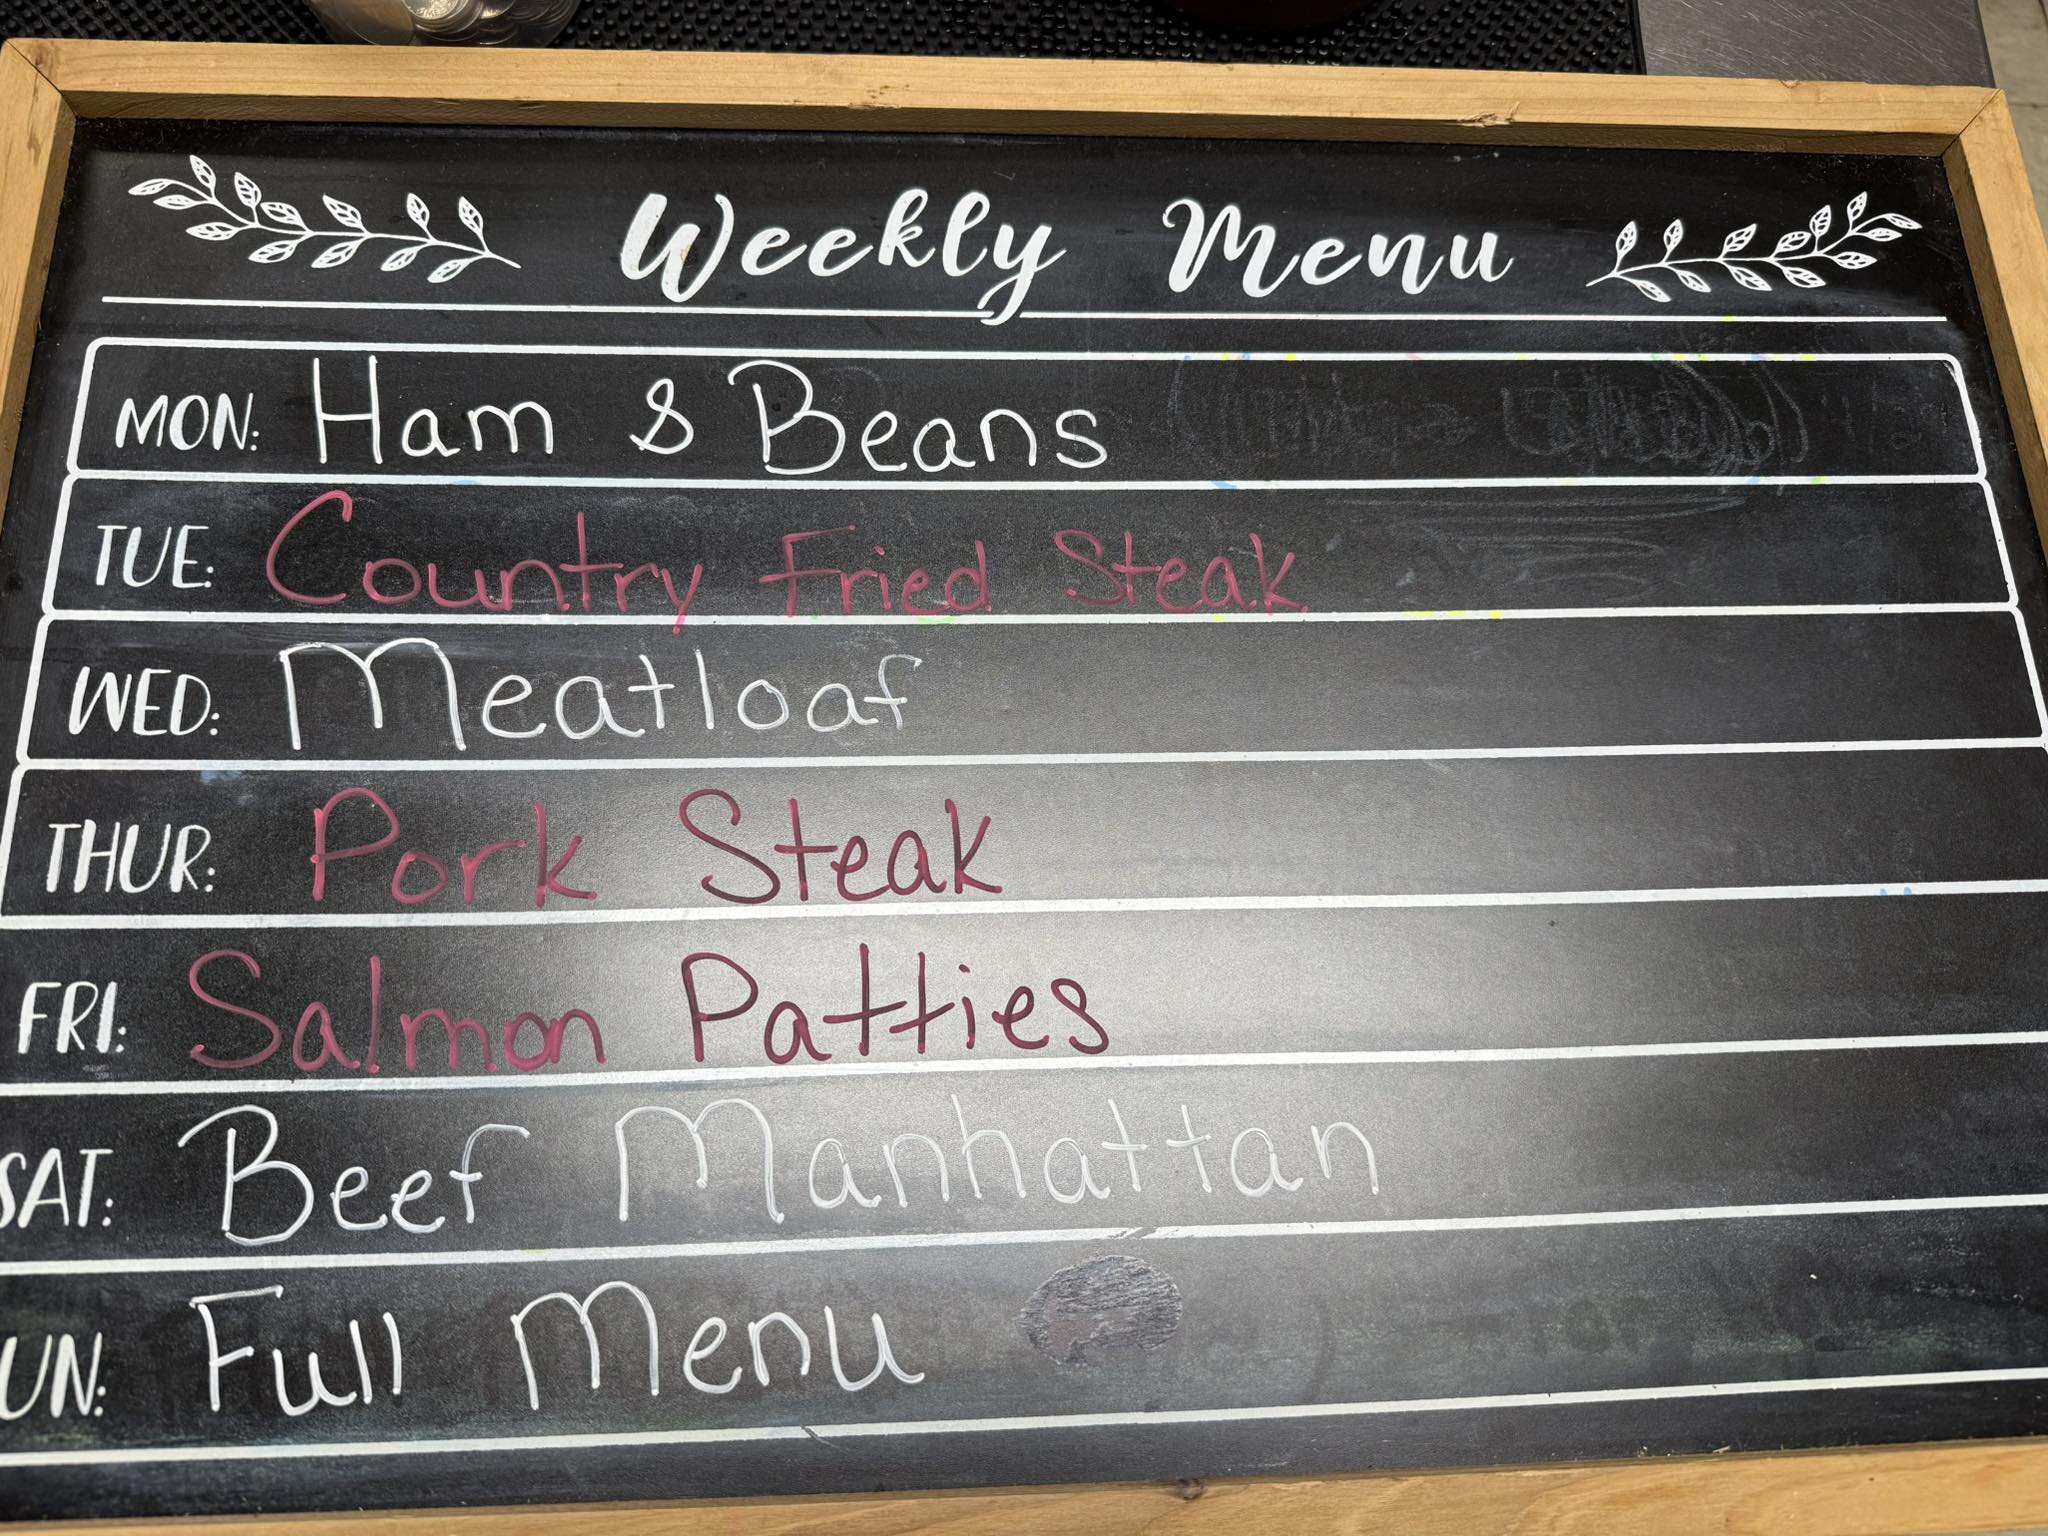 Weekly Menu
MON: Ham & Beans
TUE: Country Fried Steak
WED: Meatloaf
THUR: Pork Steak
FRI: Salmon Patties
SAT: Beef Manhattan
UN: Full Menu